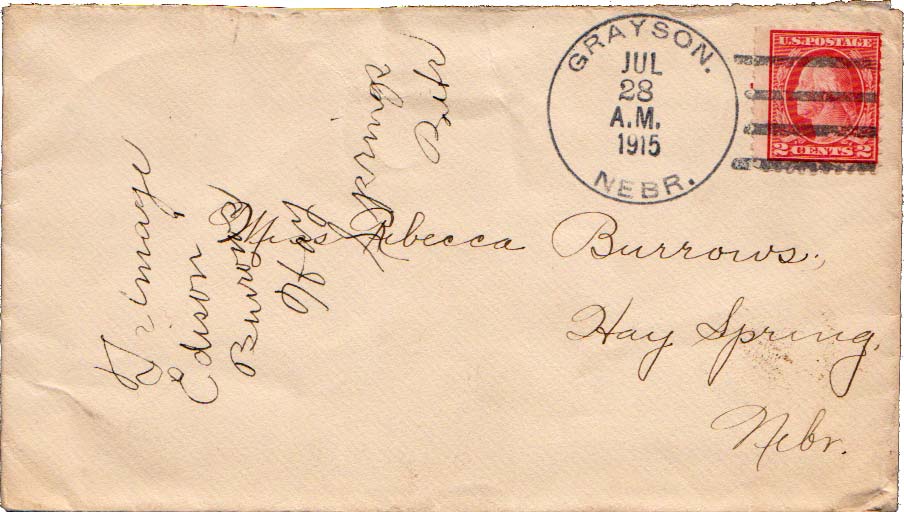 GRAYSON.
JUL
28
A.M.
1915
NEBR.
U.S. POSTAGE
2 CENTS 2
Miss Rebecca Burrows.,
Hay Spring,
Nebr.
Edison
Burrows
Hay
Springs